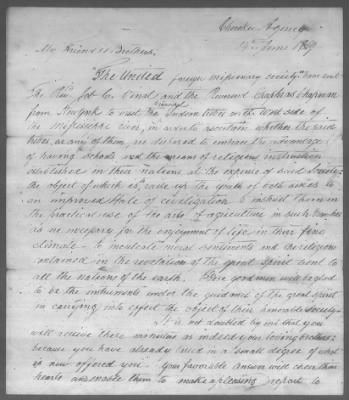 Cherokee Agency
June 1819
My Friends & Brothers
"The United foreign missionary society" have sent
The Revd. Job C. Vinal and the Reverend Epaphras Chapman
from New York to visit the several Indian tribes on the West side of
the Mississippi river, in order to ascertain whether the said
tribes, or any of them, are disposed to embrace the advantage
of having schools and the means of religious instruction
established in their nations at the expense of said Society:
the object of which is, raise up the youth of both sexes to
an improved state of civilization to instruct them in
the practical use of the arts of agriculture in such branches
as are necessary for the enjoyment of life, in their fine
climate - to inculcate moral sentiments and the religion
contained in the revelation of the great Spirit sent to
all the nations of the earth. These good men will be glad
to be the instruments under the guidance of the great Spirit
in carrying into effect the object of their honorable society
It is not doubted by me that you
will receive these ministers as indeed your loving brothers;
because you have already tried in a small degree of what
is now offered you. Your favorable answer will cheer their
hearts and enable them to make a pleasing report to